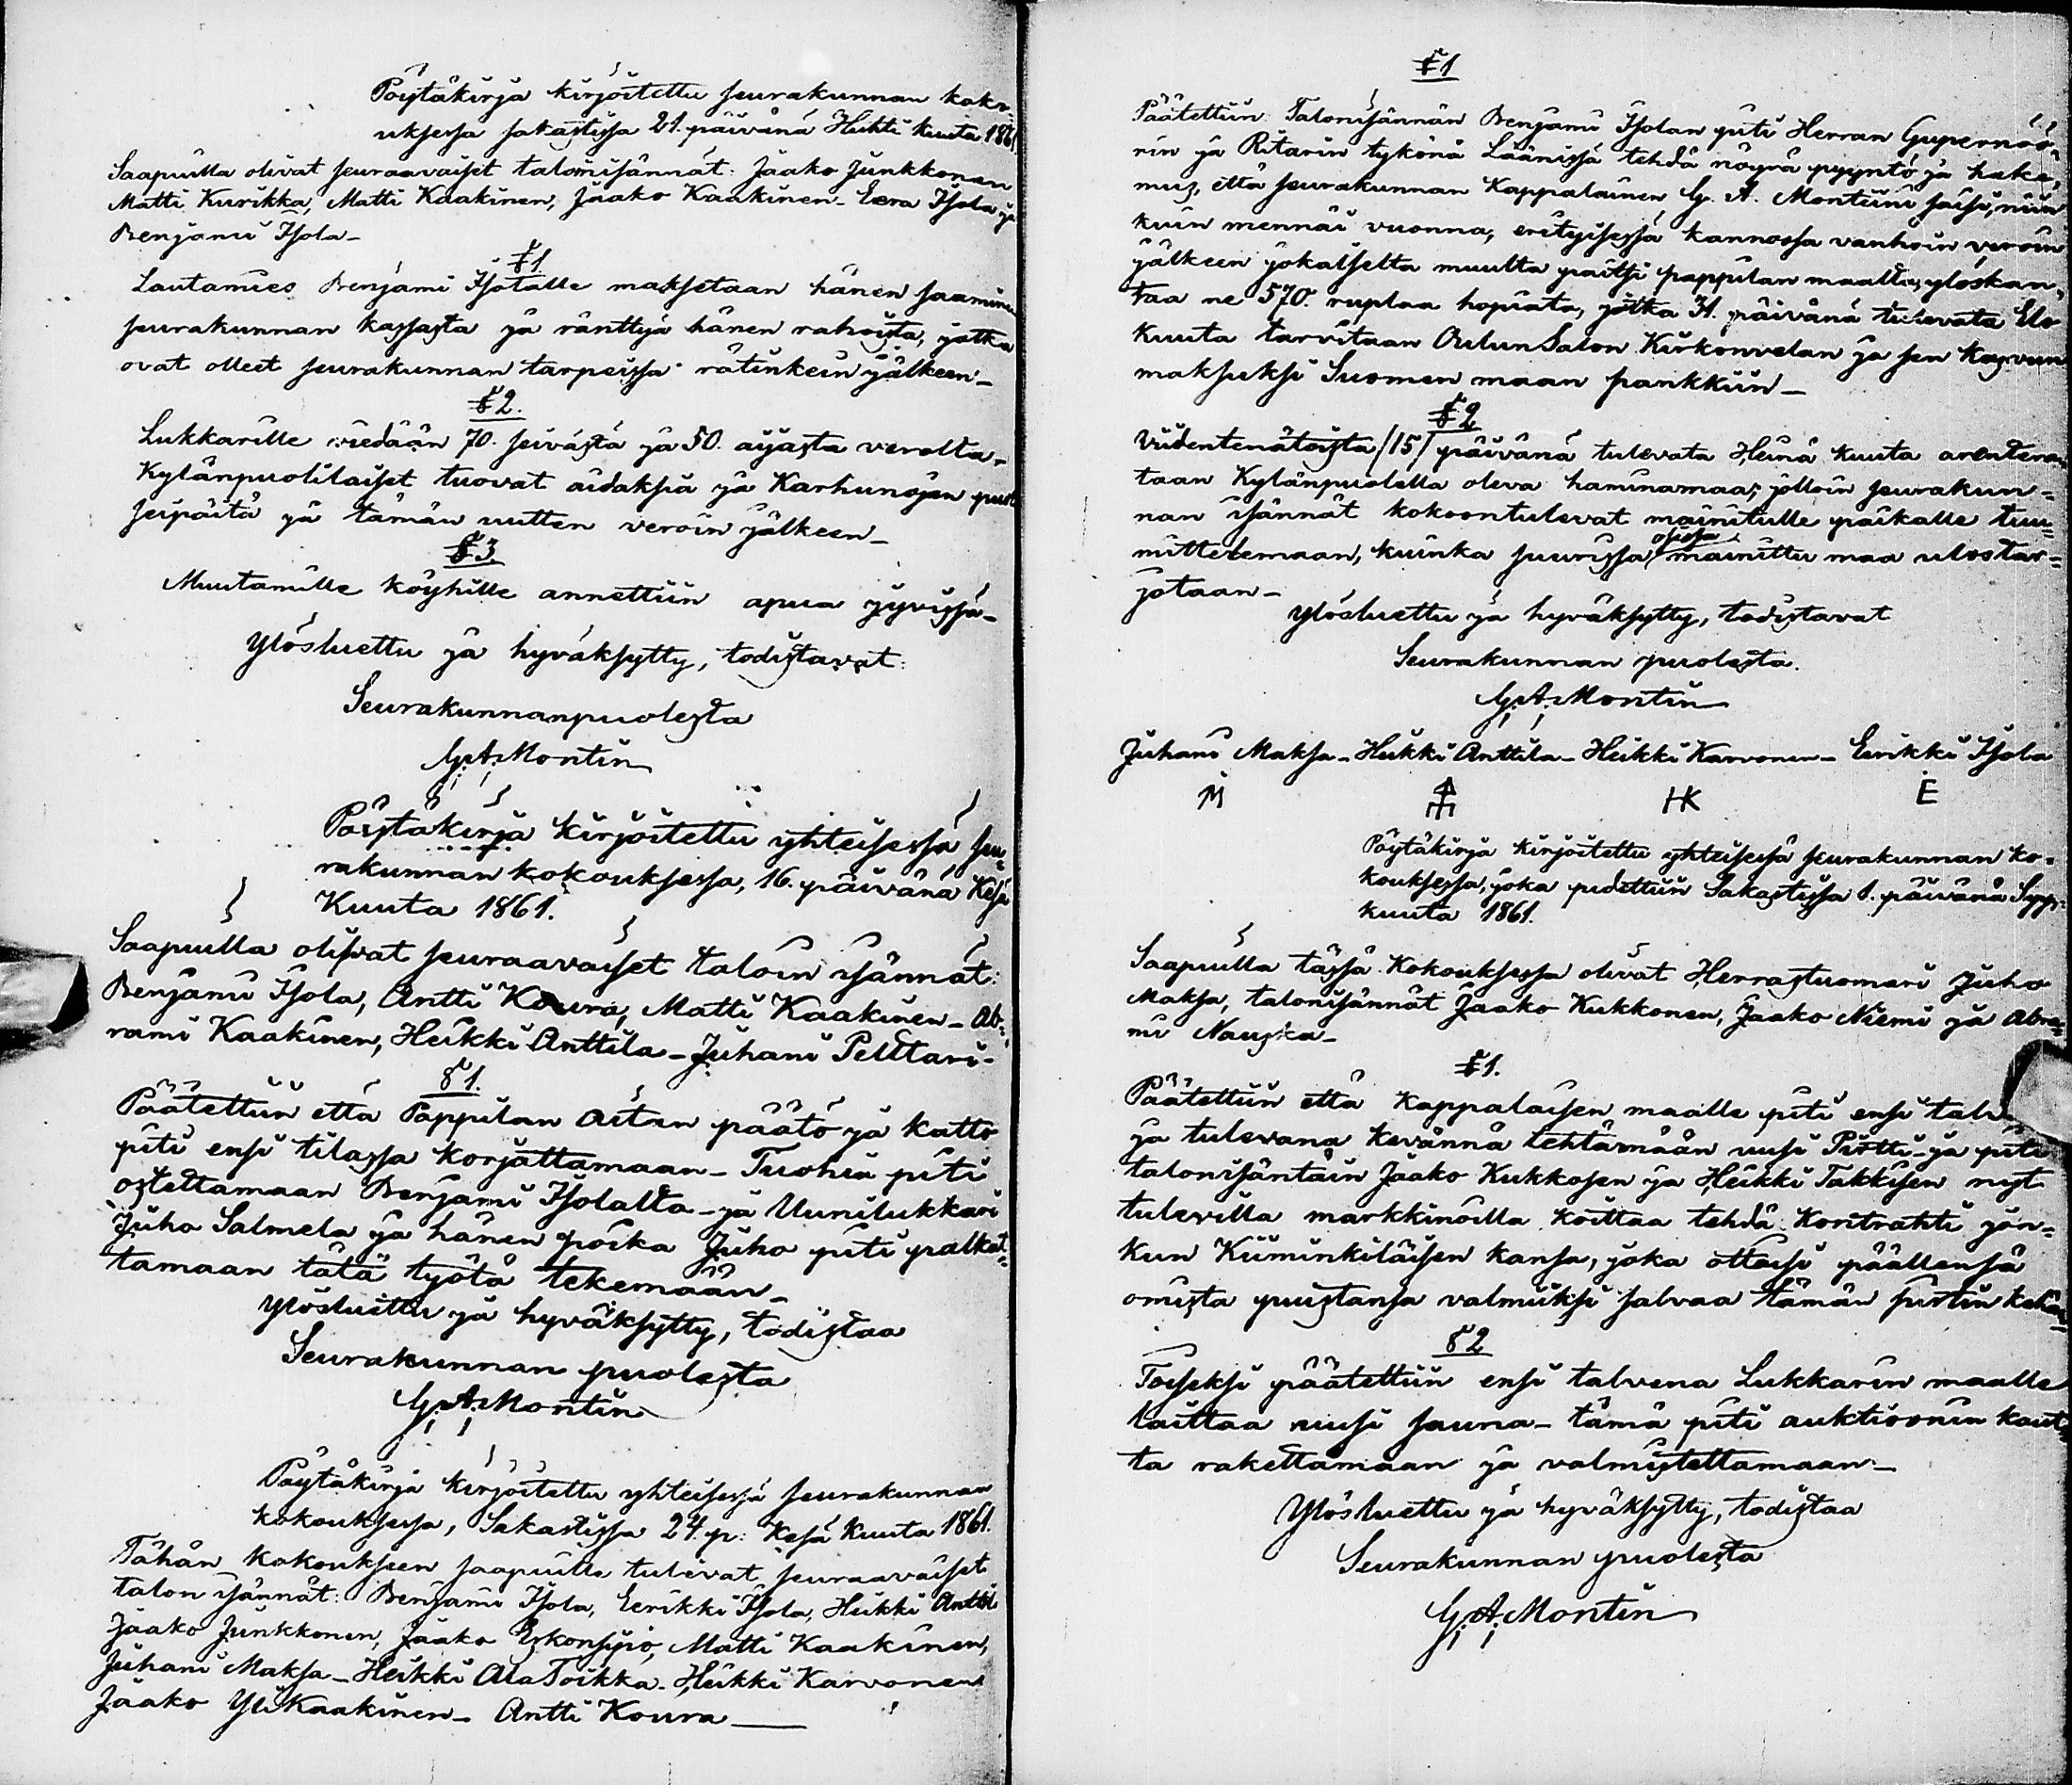 Pöytäkirja kirjoitettu seurakunnan koko-
uksessa sakastissa 21. päivänä Huhti kuuta 1861.
Saapuilla olivat seuraavaiset talonisännät: Jaako Junkkonen
Matti Kurikka, Matti Kaakinen, Jaako Kaakinen - Eera Isola ja
Benjami Isola -
§1
Lautamies Benjami Isolalle maksetaan hänen saaminen
seurakunnan kassasta ja ränttyjä hänen rahoista, jotka
ovat olleet seurakunnan tarpeissa rätinkein jälkeen -
§2.
Lukkarille viedään 70. seivästä ja 50. aijasta verolta -
Kylänpuolilaiset tuovat aidaksia ja Karhunojan puoli
seipäitä ja tämän uutten veroin jälkeen -
§3
Muutamille köyhille annettiin apua jyvissä -
Ylösluettu ja hyväksytty, todistavat:
Seurakunnanpuolesta
G. A. Montin
Pöytäkirja kirjoitettu yhteisessä seu=
rakunnan kokouksessa, 16. päivänä Kesä
Kuuta 1861.
Saapuilla olivat seuraavaiset taloin isännät:
Benjami Isola, Antti Koura, Matti Kaakinen - Ab=
rami Kaakinen, Heikki Anttila - Juhani Pelttari -
§1.
Päätettiin että Pappilan Aitan päätö ja katto
piti ensi tilassa korjattamaan - Tuohia piti
ostettamaan Benjami Isolalta - ja Unilukkari
Juho Salmela ja hänen poika Juho piti palkat=
tamaan tätä työtä tekemään -
Ylösluettu ja hyväksytty, todistaa
Seurakunnan puolesta
G. A. Montin
Pöytäkirja kirjoitettu yhteisessä seurakunnan
kokouksessa, Sakastissa 24. p: Kesä Kuuta 1861.
Tähän kokoukseen saapuille tulivat seuraavaiset
talon isännät: Benjami Isola, Eerikki Isola, Heikki Anttil
Jaako Junkkonen, Jaako Matti Kaakinen,
Juhani Maksa - Heikki AlaToikka - Heikki Karvonen
Jaako YliKaakinen - Antti Koura -
§1
Päätettiin Talonisännän Benjami Isolan piti Herran Gupernöö-
rin ja Ritarin tykönä Läänissä tehdä nöyrä pyyntö ja hake=
mus, että seurakunnan Kappalainen G. A. Montiini saisi, niin
kuin mennäi vuonna, erityisessä kannossa vanhoin veroin
jälkeen jokaiselta muulta paitsi pappilan maalta, ylöskan=
taa ne 570. ruplaa hopiata, jotka 31. päivänä tulevata Elo
kuuta tarvitaan OulunSalon Kirkonvelan ja sen kasvun
maksuksi Suomen maan pankkiin -
§2
Viidentenätoista /15/ päivänä tulevata Heinä kuuta arentera
taan Kylänpuolella oleva haminamaa, jolloin seurakun=
nan isännät kokoontulevat mainitulle paikalle tuu=
mittelemaan, kuinka suurissa osissa mainittu maa ulostar=
jotaan -
Ylösluettu ja hyväksytty, todistavat
Seurakunnan puolesta.
G. A. Montin
Juhani Maksa - Heikki Anttila - Heikki Karvonen - Eerikki Isola
M HK E
Pöytäkirja kirjoitettu yhteisessä seurakunnan ko=
kouksessa, joka pidettiin Sakastissa 1. päivänä Syys
kuuta 1861.
Saapuilla tässä Kokouksessa olivat Herrastuomari Juho
Maksa, talonisännät Jaako Kukkonen, Jaako Niemi ja Abra=
mi Nauska -
§1.
Päätettiin että Kappalaisen maalle piti ensi talv
ja tulevana kevännä tehtämään uusi Pirtti - ja piti
talonisäntäin Jaako Kukkosen ja Heikki Takkisen nyt
tulevilla markkinoilla koittaa tehdä kontrahti jon=
kun Kiiminkiläisen kansa, joka ottaisi päällensä
omista puustansa valmiiksi salvaa tämän pirtin kehän=
§2
Toiseksi päätettiin ensi talvena Lukkarin maalle
laittaa uusi sauna - tämä piti auktioonin kaut=
ta rakettamaan ja valmistettamaan -
Ylösluettu ja hyväksytty, todistaa
Seurakunnan puolesta
G. A. Montin